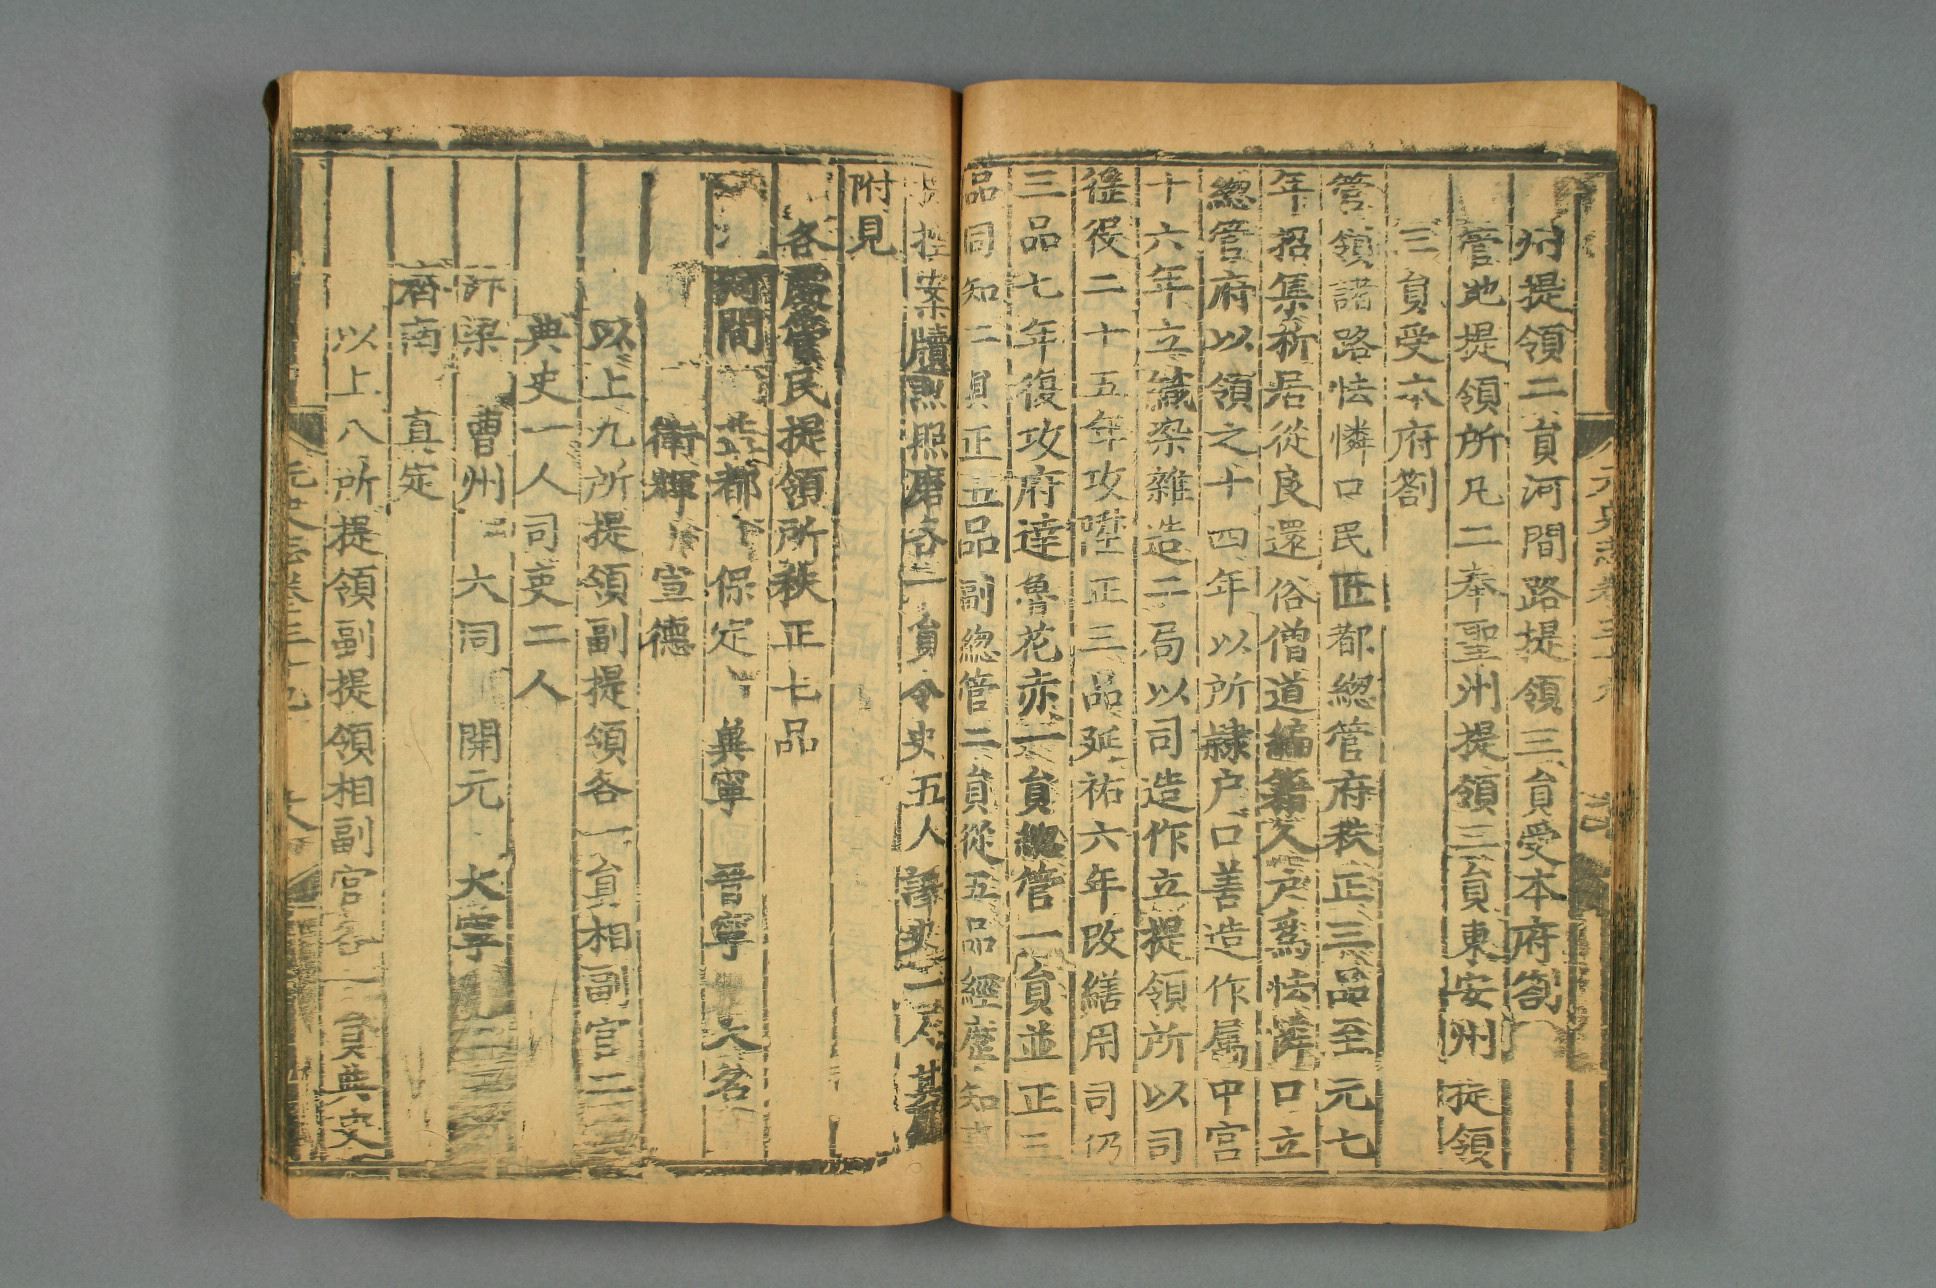 州提領二員河間路提領三員受本府劄
管地提領所凡二奉聖州提領三員東安州提領
三員受本府劄
管領諸路怯憐口民匠都總管府秩正三品至元七
年招集析居從良還俗僧道編籍人户爲怯憐口立
總管府以領之十四年以所隷户口善造作屬中宫
十六年立織染雜造二局以司造作立提領所以司
徭役二十五年攻陞正三品延祐六年改繕用司仍
三品七年復攻府達魯花赤一員總管一員並正三
品同知二員正五品副總管二員從五品經歷知事
提控案牘照磨各一員令史五人譯史一人其
附見
各處管民提領所秩正七品
河間 益都 保定 冀寧 晉寧 大名
衛輝 宣德
以上九所提領副提領各一員相副官二
典史一人司吏二人
汴梁 曹州 大同 開元 大寧
濟南 真定
以上八所提領副提領相副官各一員典史
元史志卷三十九